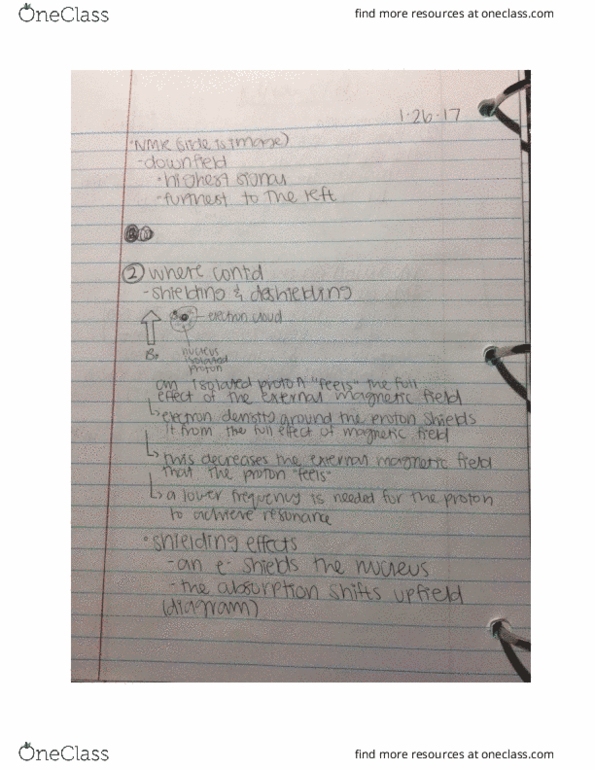 OneClass
find more resources at oneclass.com
1.26.17
NMR (slide is image)
-downfield
• highest signal
-furthest to the left
② where cont'd
-shielding & deshielding
electron cloud
B₀
nucleus
isolated
proton
an isolated proton "feels" the full
effect of the external magnetic field
↳ electron density around the proton shields
it from the full effect of magnetic field
↳ this decreases the external magnetic field
that the proton "feels"
↳ a lower frequency is needed for the proton
to achieve resonance
• shielding effects
-an e- shields the nucleus
-the absorption shifts upfield
(diagram)
OneClass
find more resources at oneclass.com